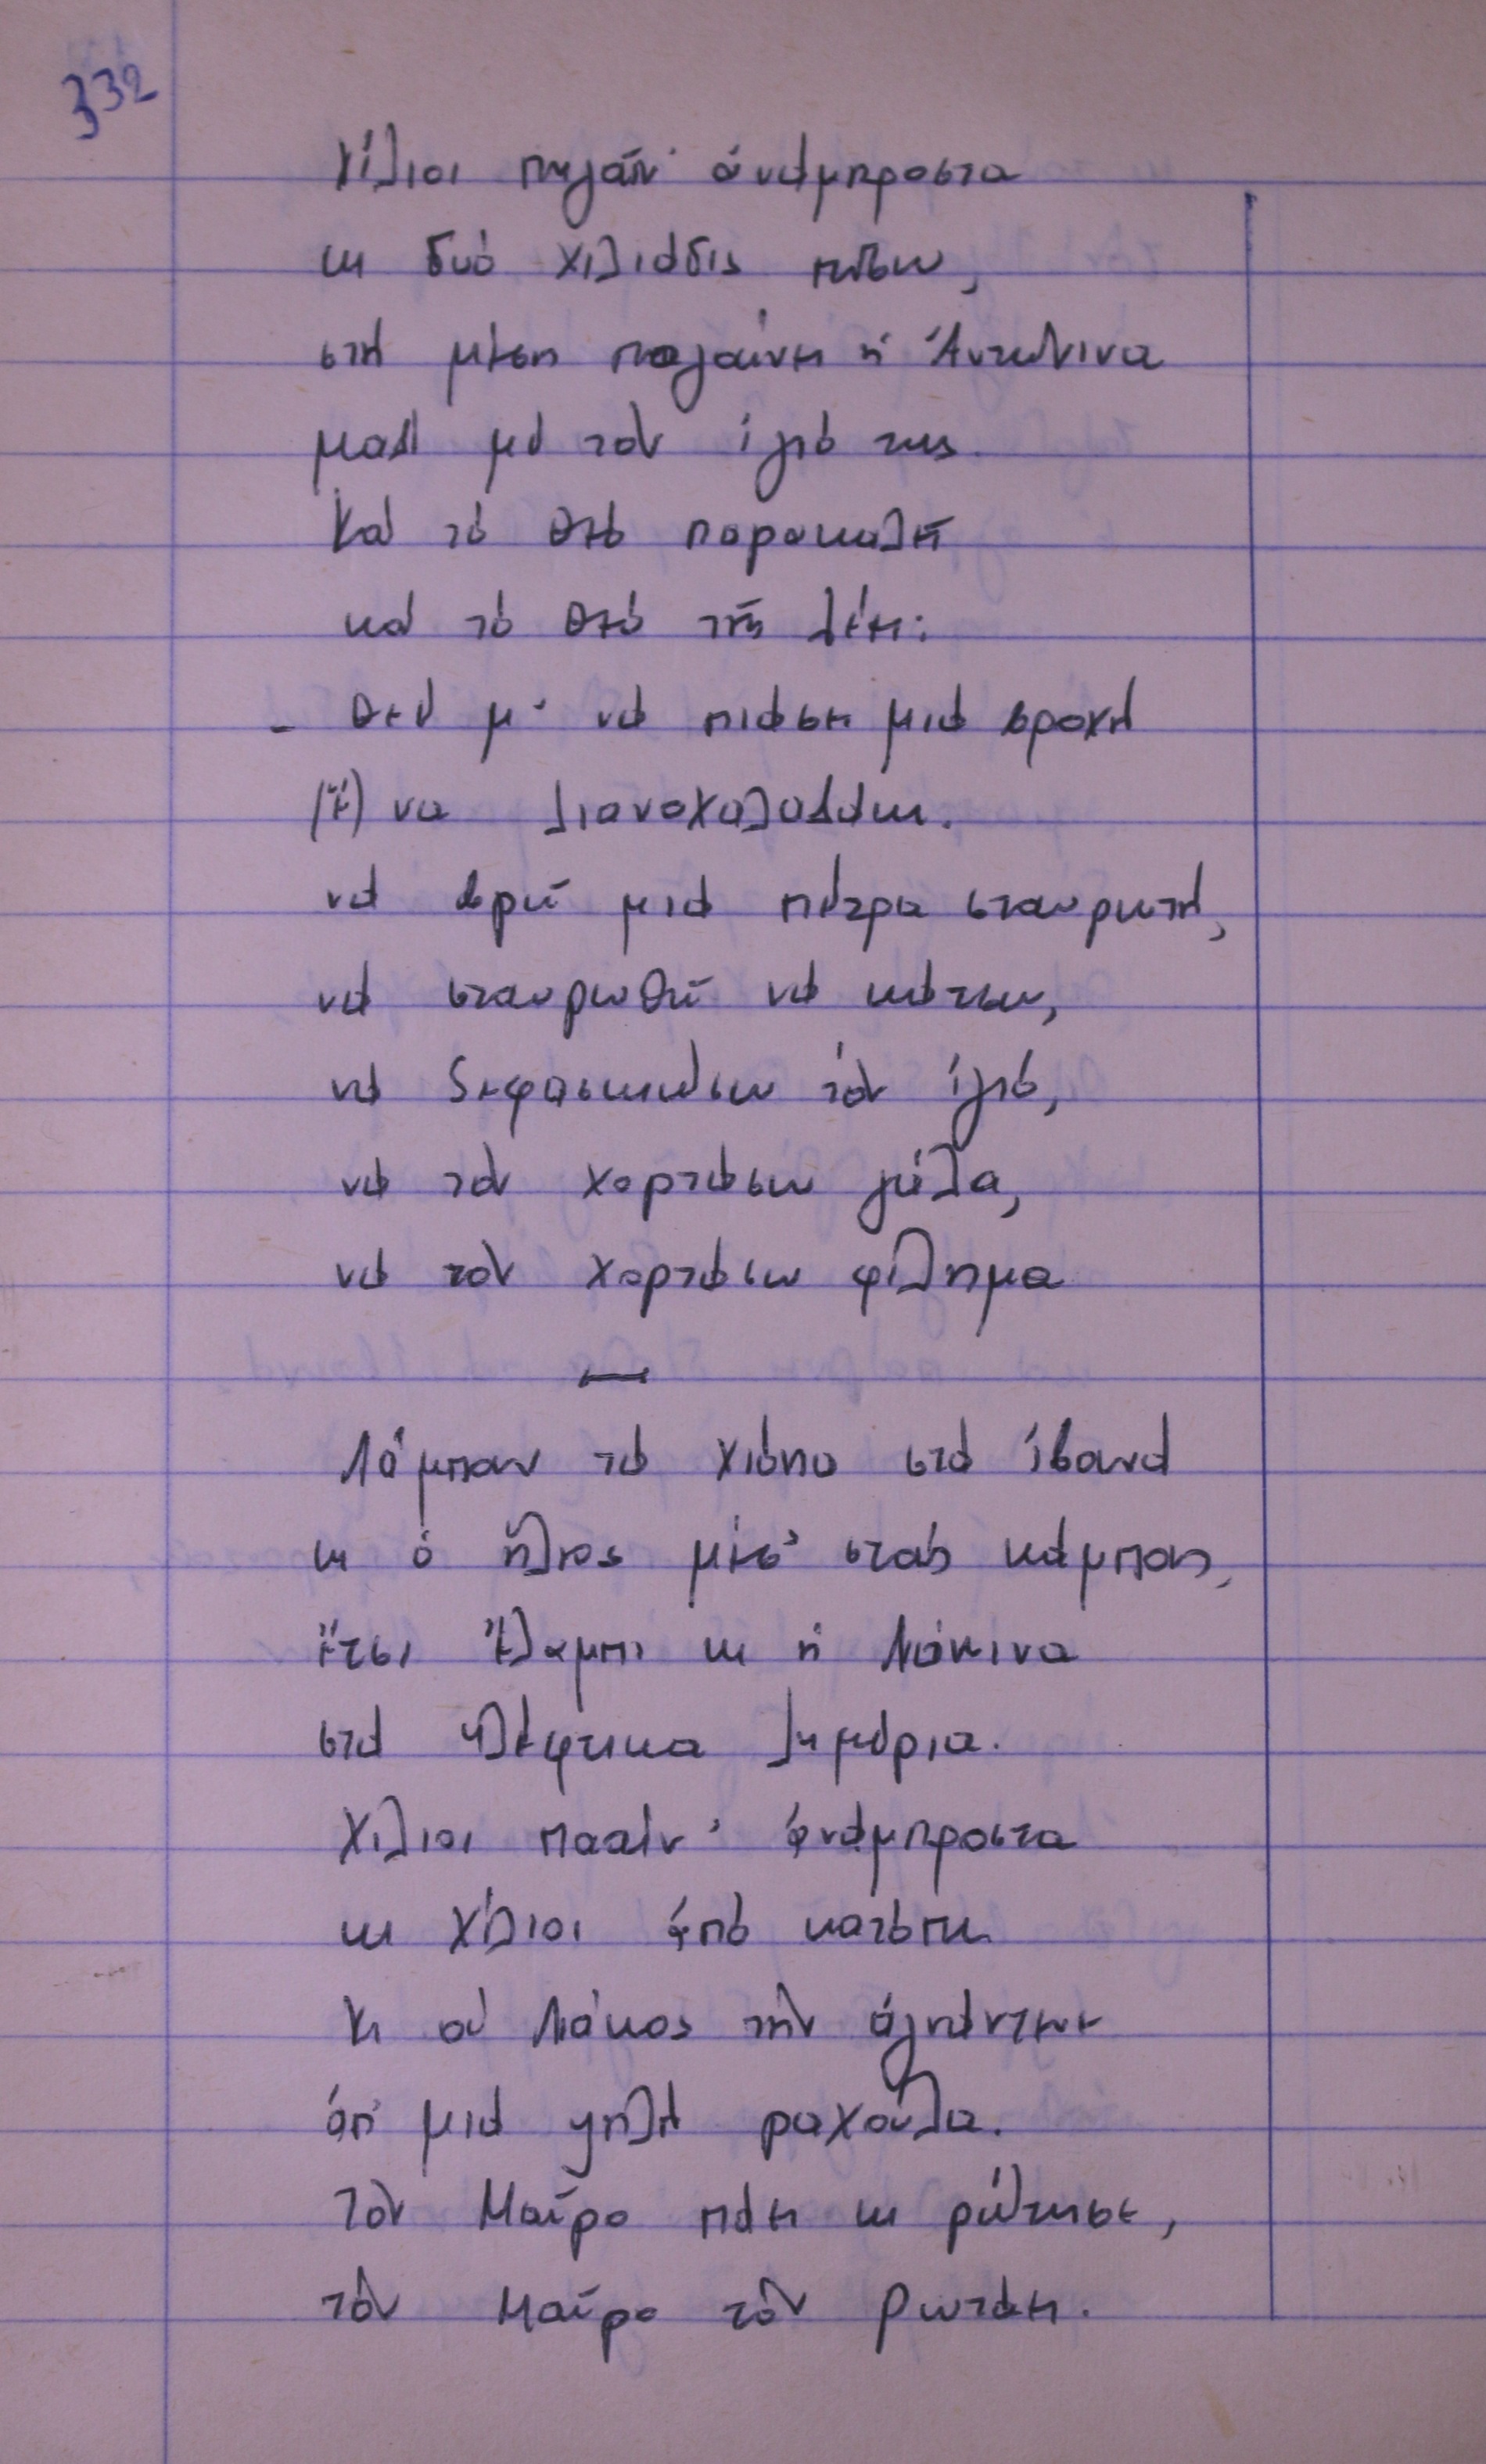 332
Χίλιοι πηγαῖν' ἀνάμπροστα
κι δυό χιλιάδις πίσω,
στή μέση πηγαίνει ἡ Ἀντώνινα
μαζί μέ τόν ἱγιό της.
Κα τό Θεό παρακαλεῖ
κα τό Θεό τῆς λέει:
- Θεέ μ' νά πιάσει μιά βροχή
(ἕ) να σιανοχαλάζι.
νά βρῶ μιά πέτρα σταυρωτή,
νά σταυρωθῶ νά κάτσω,
νά ξεφασκιώσω τόν ἱγιό,
νά τόν χορτάσω γάλα,
νά τόν χορτάσω φίλημα
—
Λάμπουν τά χιόνια στά ἱβουνά
κι ὁ ἥλιος μέσ' στούς κάμπους,
ἔτσι ἔλαμπι κι ἡ Λιάκινα
στά κλέφτικα λημέρια.
Χίλιοι πααίν' ἀνάμπροστα
κι χίλιοι ἀπό κατόπι
Κι οὑ Λιάκος τήν ἀγνάντευε
ἀπ' μιά ψηλή ραχούλα.
Τόν Μαῦρο πάει κι ρώτησε,
τόν Μαῦρο τόν ρωτάει.